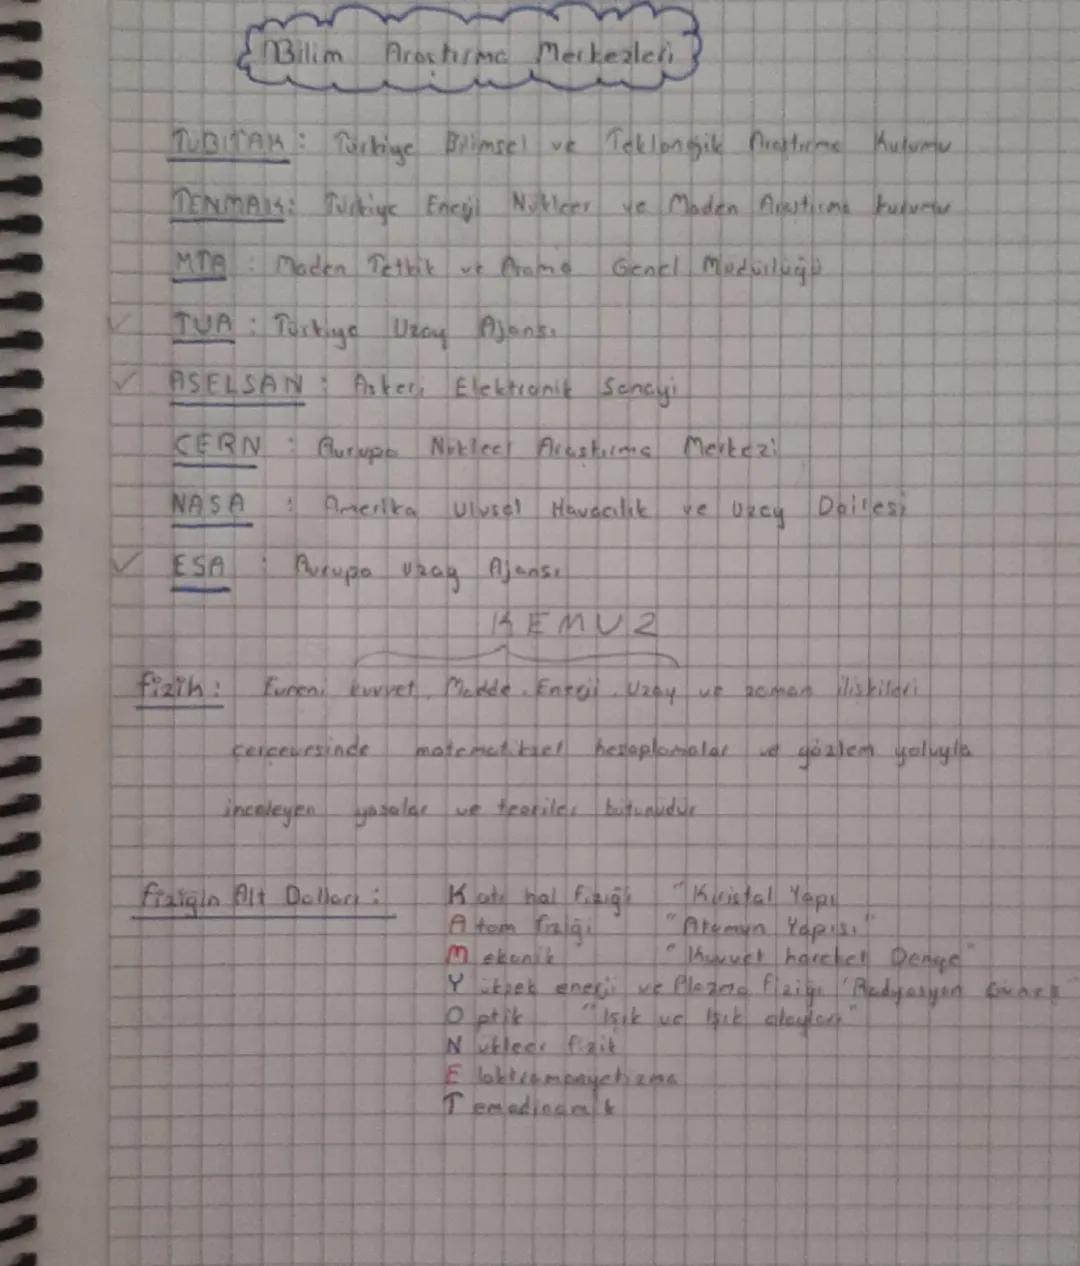 Bilim Araştırma Merkezleri
TUBITAK : Türkiye Bilimsel ve Teklonojik Araştırma Kurumu
TENMAK : Türkiye Enerji Nükleer ve Maden Araştırma kurumu
MTA : Maden Tetkik ve Arama Genel Müdürlüğü
TUA : Türkiye Uzay Ajansı
ASELSAN : Askeri Elektronik Sanayi
CERN : Avrupa Nükleer Araştırma Merkezi
NASA : Amerika Ulusal Havacılık ve Uzay Dairesi
ESA : Avrupa Uzay Ajansı
KEMUZ
fizik : Evreni kuvvet, Madde, Enerji, Uzay ve zaman ilişkileri
çerçevesinde matematiksel hesaplamalar ve gözlem yoluyla
inceleyen yasalar ve teoriler bütünüdür
fiziğin Alt Dalları : Katı hal fiziği "Kıristal Yapı
Atom fiziği "Atomun Yapısı"
Mekanik "Kuvvet hareket Denge"
Yüksek enerji ve Plazma fiziği "Radyasyon
Optik "Işık ve Işık olayları"
Nükleer fizik
Elektromanyetizma
Temadinamik